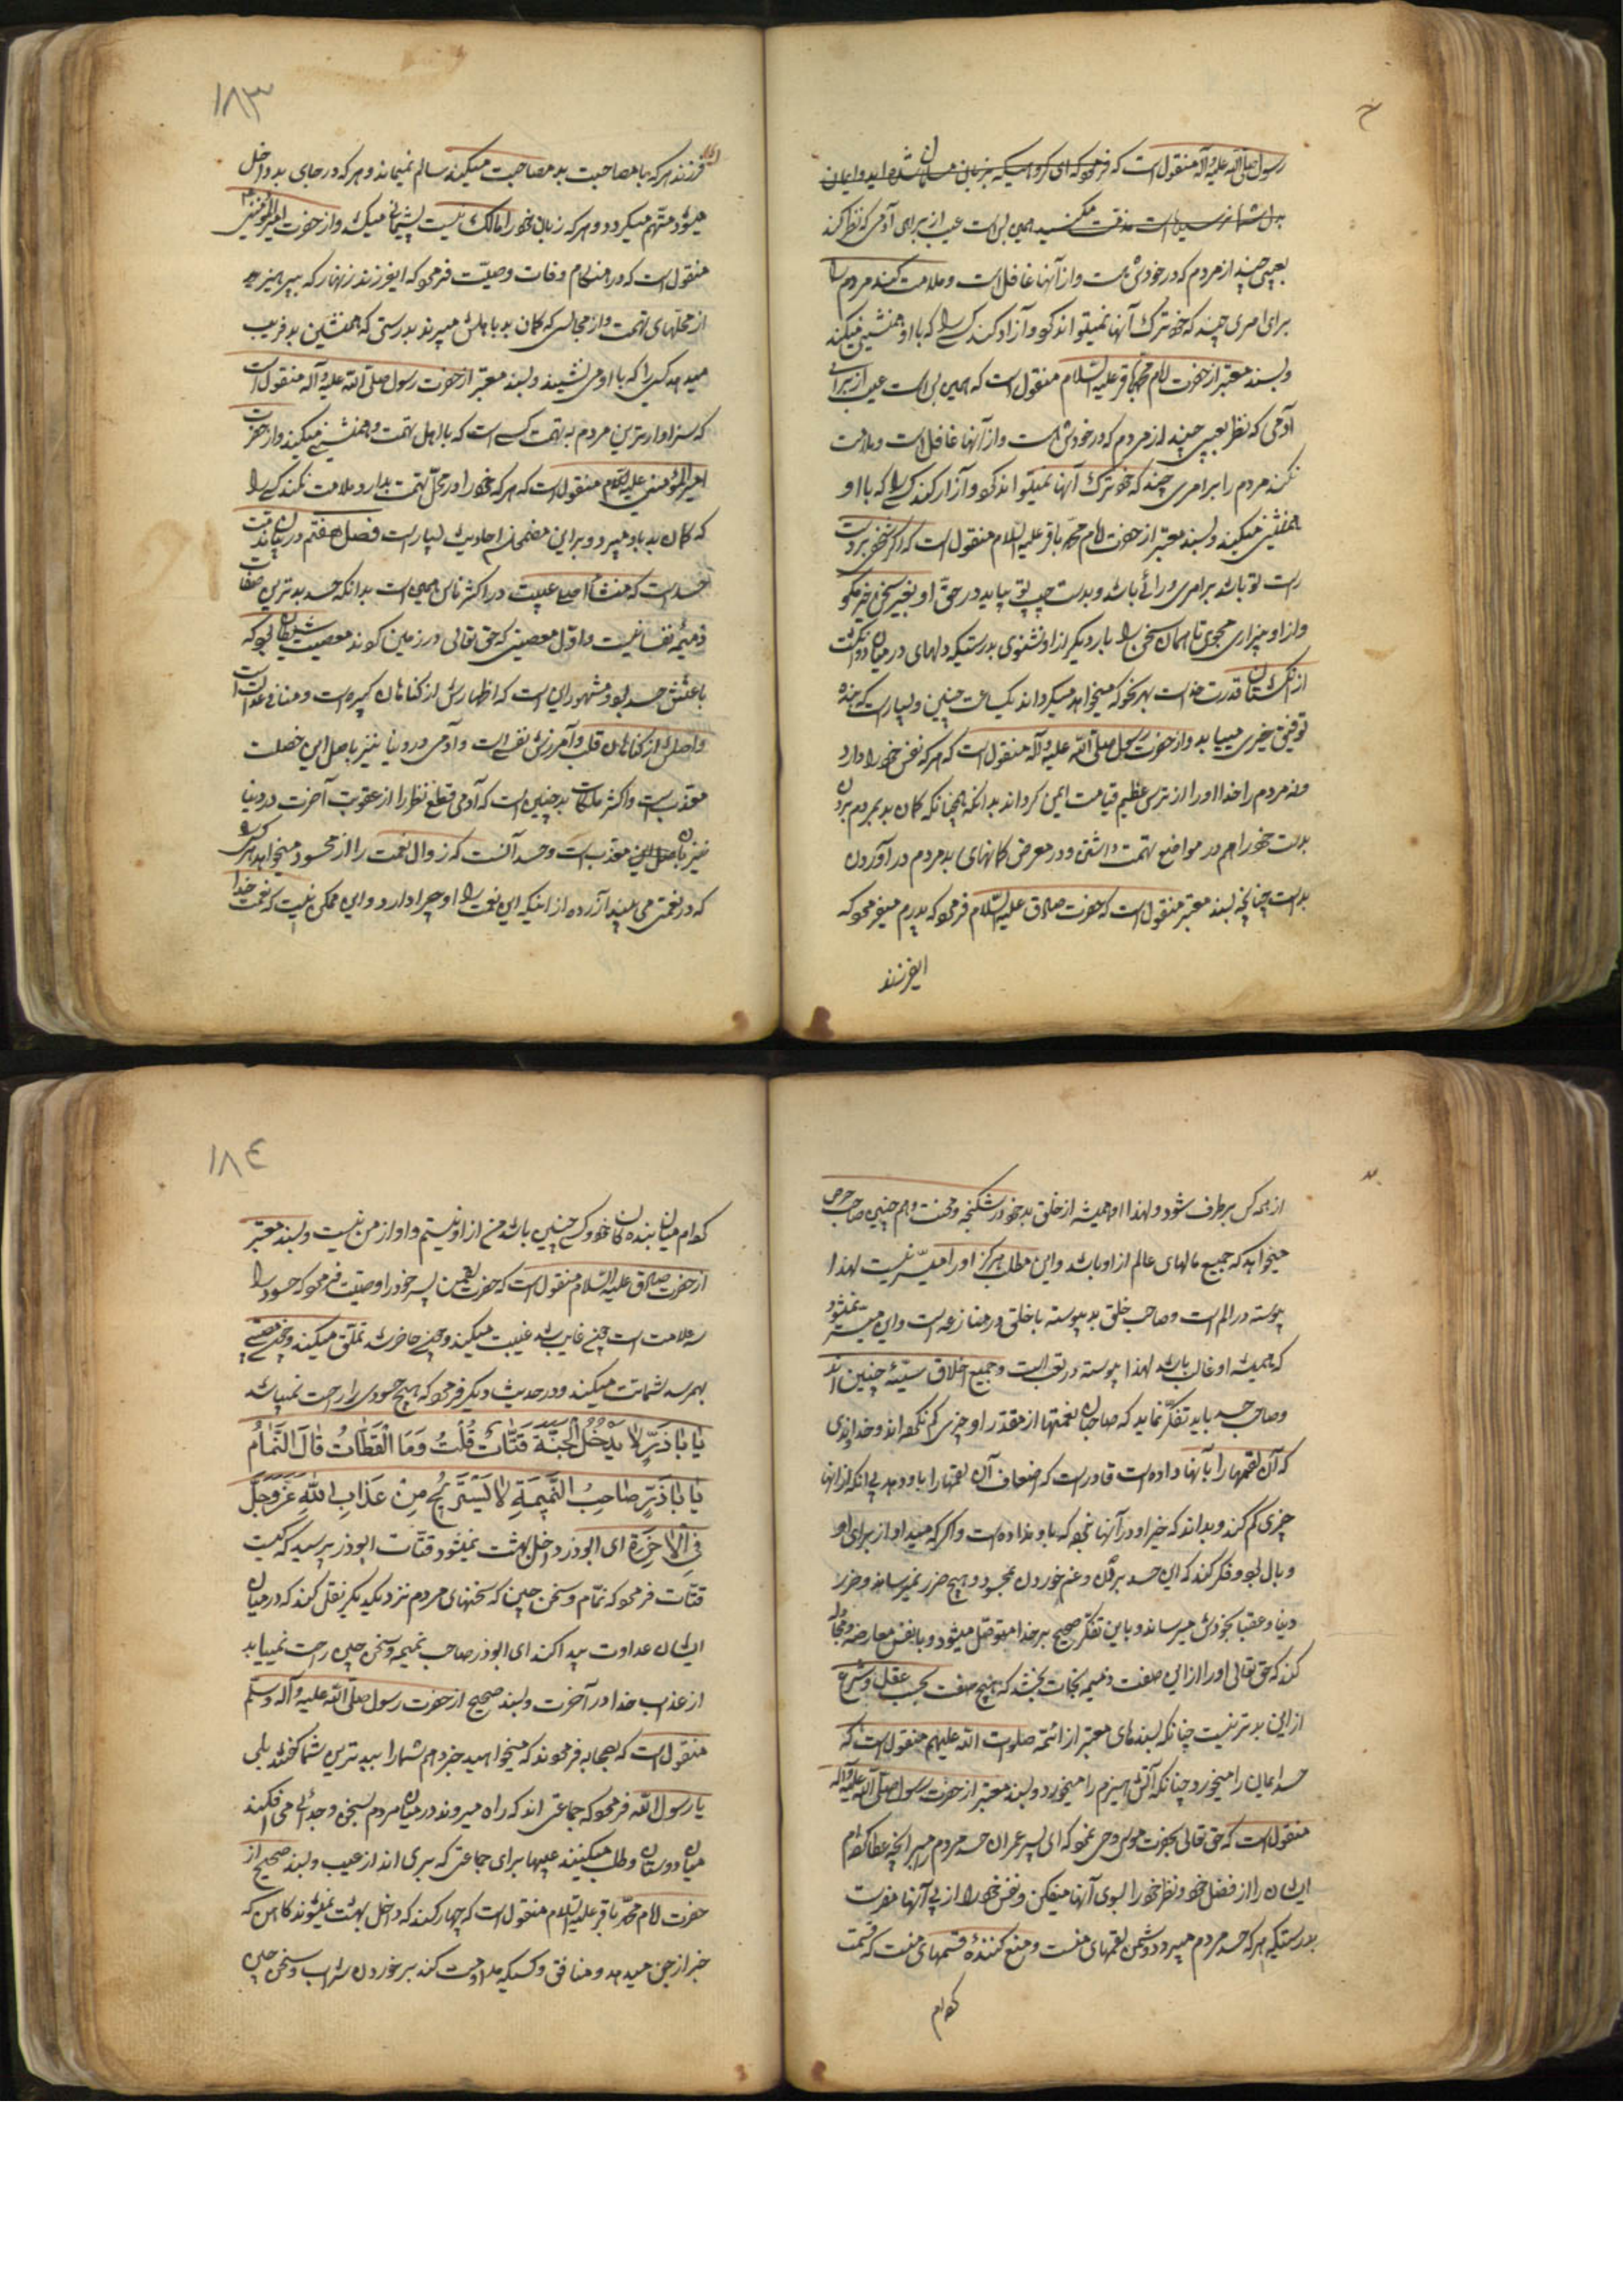 رسول صلی الله علیه و آله منقول است که فرمود که ای گروهیکه بزبان مسلمان شده اید و ایمان
بدل شما نرسیده است مذمت مکنید همین بس است عیب از برای آدمی که نظر کند
بعیبی چند از مردم که در خودش هست و از آنها غافل است و ملامت کند مردم را
برای امری چند که خود ترک آنها نمیتواند کرد و آزار کند کسی را که با او همنشینی میکند
و بسند معتبر از حضرت امام محمد باقر علیه السلام منقول است که همین بس است عیب از برای
آدمی که نظر بعیبی چند از مردم که در خودش هست و از آنها غافل است و ملامت
نکند مردم را بر امری چند که خود ترک آنها نمیتواند کرد و آزار کند کسی را که با او
همنشینی میکند و بسند معتبر از حضرت امام محمد باقر علیه السلام منقول است که اگر شخصی بر دست
راست تو باشد بر امری و رائی باشد و بدست چپ تو بیاید در حق او بغیر سخن خیر مگو
و از او بیزاری مجوی تا همان سخن را بار دیگر از او نشنوی بدرستیکه دلهای در میان دو انگشت
از انگشتان قدرت خداست بهر نحو که میخواهد میگرداند یکساعت چنین و بسیار است که بنده
توفیق خیری مییابد و از حضرت رسول صلی الله علیه و آله منقول است که هر که نفس خود را دارد
و نه مردم را خدا او را از ترس عظیم قیامت ایمن گرداند بدانکه همچنانکه گمان بد بمردم بردن
بد است خود را هم در مواضع تهمت داشتن و در معرض گمانهای بد مردم در آوردن
بد است چنانچه بسند معتبر منقول است که حضرت صادق علیه السلام فرمود که پدرم میفرمود که
ایفرزند
۱۸۳
فرزند هر که با مصاحبت بد مصاحبت میکند سالم نمیماند و هر که در جای بد داخل
میشود متهم میگردد و هر که زبان خود را مالک نیست پشیمانی میکشد و از حضرت امیر المؤمنین
منقول است که در هنگام وفات وصیت فرمود که ایفرزند زنهار که بپرهیز
از محلهای تهمت و از مجالسی که گمان بد باهلش میبرند بدرستی که همنشین بد فریب
میدهد کسی را که با او می نشیند و بسند معتبر از حضرت رسول صلی الله علیه و آله منقول است
که سزاوارترین مردم به تهمت کسی است که با اهل تهمت همنشینی میکند و از حضرت
امیر المؤمنین علیه السلام منقول است که هر که خود را در محل تهمت بدارد ملامت نکند کسی را
که گمان بد باو میبرد و بر این مضمون احادیث بسیار است فصل هفتم در بیان مذمت
حسد است که منشأ اصلی غیبت در اکثر ناس همین است بدانکه حسد بدترین صفات
ذمیمه نفسانیست و اول معصیتی که حق تعالی را در زمین کردند معصیت شیطان بود که
باعثش حسد بود و مشهور این است که اظهارش از گناهان کبیره است و منافی عدالت است
و اصلش از گناهان قلب و آمرزش نفس است و آدمی در دنیا نیز باصل این خصلت
معذب است و اکثر ملکات بد چنین است که آدمی قطع نظر از عقوبت آخرت در دنیا
نیز باصل این معذب است و حسد آنست که زوال نعمت را از محسود میخواهد هر کسی را
که در نعمتی می بیند آزرده از اینکه این نعمت را او چرا دارد و این ممکن نیست که نعمت خدا
از همه کس بر طرف شود و لهذا او همیشه از خلق بد خود در شکنجه و محنت و هم چنین صاحب حرص
میخواهد که جمیع مالهای عالم از او باشد و این مطلب هرگز او را میسر نیست لهذا
پیوسته در الم است و صاحب خلق بد پیوسته با خلق در منازعه است و این میسر نمیشود
که همیشه او غالب باشد لهذا پیوسته در تعب است و جمیع اخلاق سیئه چنین اند
و صاحب حسد باید تفکر نماید که صاحبان نعمتها از مقدر او چیزی کم نکرده اند و خداوندی
که آن نعمتها را بآنها داده است قادر است که اضعاف آن نعمتها را باو دهد بی انکه از انها
چیزی کم کند و بداند که خیر او در آنها نبود که باو نداده است و اگر که میداد از برای او
وبال بود و فکر کند که این حسد بردن و غم خوردن بمحسود هیچ ضرر نمیرساند و ضرر
دنیا و عقبا بخودش میرساند و باین تفکر صحیح بر خدا متوسل میشود و با نفس معارضه و مجادله
کند که حق تعالی او را از این صفت ذمیمه نجات بخشد که هیچ صفت بحسب عقل و شرع
از این بدتر نیست چنانکه بسندهای معتبر از ائمه صلوات الله علیهم منقول است که
حسد ایمان را میخورد چنانکه آتش هیزم را میخورد و بسند معتبر از حضرت رسول صلی الله علیه و آله
منقول است که حق تعالی بحضرت موسی وحی نمود که ای پسر عمران حسد مردم مبر بر آنچه عطا کرده ام
ایشان را از فضل خود و نظر خود را بسوی آنها میفکن و نفس خود را از پی آنها مفرست
بدرستیکه هر که حسد مردم میبرد دشمن نعمتهای منست و منع کننده قسمهای منست که قسمت
کرده ام
۱۸٤
کرده ام میان بندگان خود و کسی چنین باشد من از او نیستم و او از من نیست و بسند معتبر
از حضرت صادق علیه السلام منقول است که حضرت لقمن پسر خود را وصیت فرمود که حسود را
سه علامت است چون غایب شد غیبت میکند و چون حاضر شد تملق میکند و چون مصیبتی
بهمرسد شماتت میکند و در حدیث دیگر فرمود که هیچ حسودی را راحت نمیباشد
یَا بَا ذَرٍّ لَا یَدْخُلُ الْجَنَّةَ قَتَّاتٌ قُلْتُ وَمَا الْقَتَّاتُ قَالَ النَّمَّامُ
یَا بَا ذَرٍّ صَاحِبُ النَّمِیمَةِ لَا یَسْتَرِیحُ مِنْ عَذَابِ اللهِ عَزَّ وَجَلَّ
فِی الْآخِرَةِ ای ابوذر داخل بهشت نمیشود قتات ابوذر پرسید که کیست
قتات فرمود که نمام و سخن چین که سخنهای مردم نزد یکدیگر نقل کند که در میان
ایشان عداوت پیدا کند ای ابوذر صاحب نمیمه و سخن چین راحت نمییابد
از عذاب خدا در آخرت و بسند صحیح از حضرت رسول صلی الله علیه و آله وسلم
منقول است که بصحابه فرمودند که میخواهید خبر دهم شما را ببدترین شما گفتند بلی
یا رسول الله فرمود که جماعتی اند که راه میروند در میان مردم بسخن و جدائی می افکنند
میان دوستان و طلب میکنند عیبها برای جماعتی که بری اند از عیب و بسند صحیح از
حضرت امام محمد باقر علیه السلام منقول است که چهار کسند که داخل بهشت نمیشوند کاهن که
خبر از جن میدهد و منافق و کسیکه مداومت کند بر خوردن شراب و سخن چین